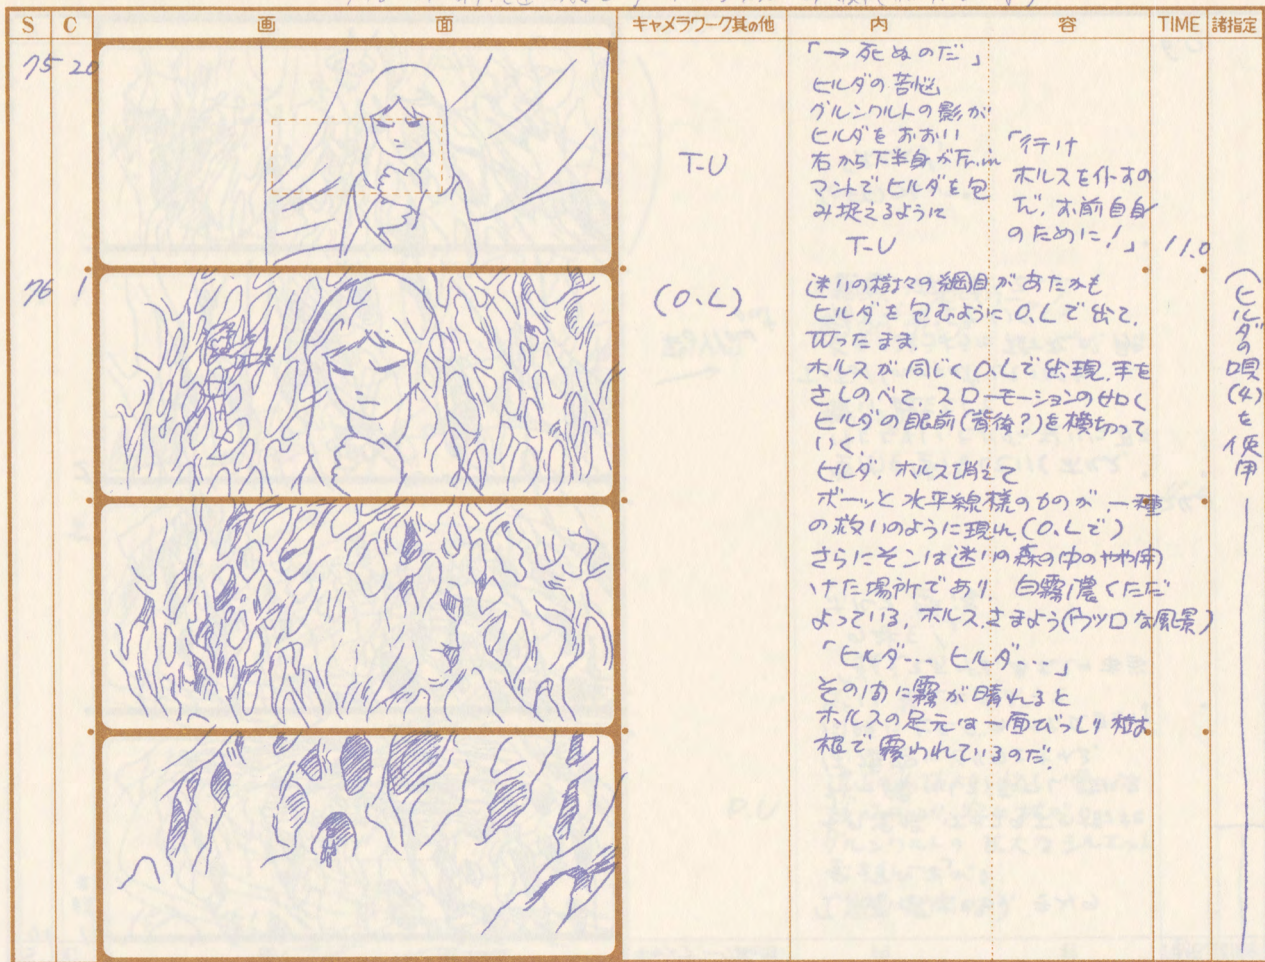 S C 画面 キャメラワーク其の他 内容 TIME 諸指定
75 20
T-U
「→死ぬのだ」
ヒルダの苦悩
グルンワルトの影が
ヒルダをおおい
右から下半身が
マントでヒルダを包
み捉えるように
T-U
「行け
ホルスを仆すの
だ,お前自身
のために!」
11.0
76 1
(O.L)
迷いの樹々の網目があたかも
ヒルダを包むようにO.Lで出て,
立ったまま,
ホルスが同じくO.Lで出現,手を
さしのべて,スローモーションの如く
ヒルダの眼前(背後?)を横切って
いく
ヒルダ,ホルス消えて
ボーッと水平線様のものが一種
の救いのように現れ,(O.Lで)
さらにそこは迷いの森の中のやや開
けた場所であり 白霧濃くただ
よっている,ホルスさまよう(ウツロな風景)
「ヒルダ… ヒルダ…」
その内に霧が晴れると
ホルスの足元は一面びっしり樹木
根で覆われているのだ
(ヒルダの唄(4)を使用